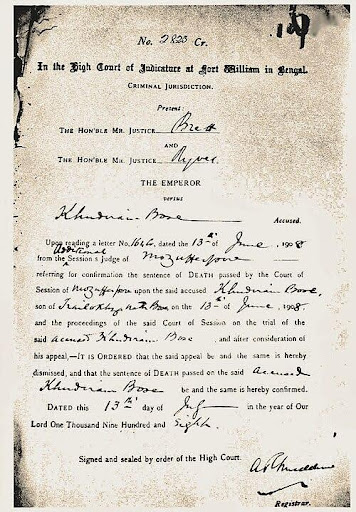 No. 2823 Cr.
In the High Court of Judicature at Fort William in Bengal.
CRIMINAL JURISDICTION.
Present:
THE HON'BLE MR. JUSTICE Brett
AND
THE HON'BLE MR. JUSTICE Ryves
THE EMPEROR
versus
Khudiram Bose Accused.
Upon reading a letter No. 1646, dated the 13th of June, 1908
Additional
from the Sessions Judge of Mozufferpore
referring for confirmation the sentence of DEATH passed by the Court of
Session of Mozufferpore upon the said accused Khudiram Bose,
son of Trailokhya Nath Bose on the 13th of June, 1908,
and the proceedings of the said Court of Session on the trial of the
said accused Khudiram Bose, and after consideration of
his appeal,—IT IS ORDERED that the said appeal be and the same is hereby
dismissed, and that the sentence of DEATH passed on the said accused
Khudiram Bose be and the same is hereby confirmed.
DATED this 13th day of July in the year of Our
Lord One Thousand Nine Hundred and Eighth.
Signed and sealed by order of the High Court.
Registrar.